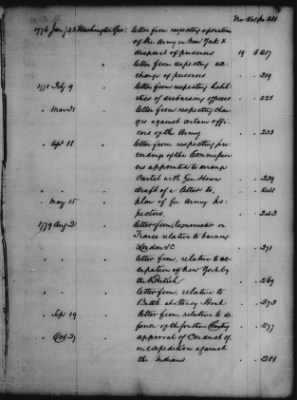 No Vol Pa 211
1776 Jan / 23 Washington Geo: letter from respecting operation
of the Army in New York &
disposal of prisoners 19 5 217
" letter from respecting ex-
change of prisoners " . 219
1778 Feb 9 " letter from respecting liabil-
ities of disbursing officers " . 225
" Mar 21 " letter from respecting char-
ges against certain offi-
cers of the Army . . 233
" Apl 18 " letter from respecting pro-
ceedings of the Commissioners
as appointed to arrange
Cartel with Gen Howe . . 239
" draft of a letter to,
" May 15 " plan of for Army ins-
pectors, . . 243
1779 Aug 2 " letter from, 
France relative to burning
London &C . . 271
" letter from, relative to oc-
cupation of New York by
the British . . 269
" letter from, relative to
Battle at Stoney Point . . 273
" Sep 19 " letter from relative to
. . 277
" Oct 21 approval of Conduct of
an expedition against
the Indians . . 281